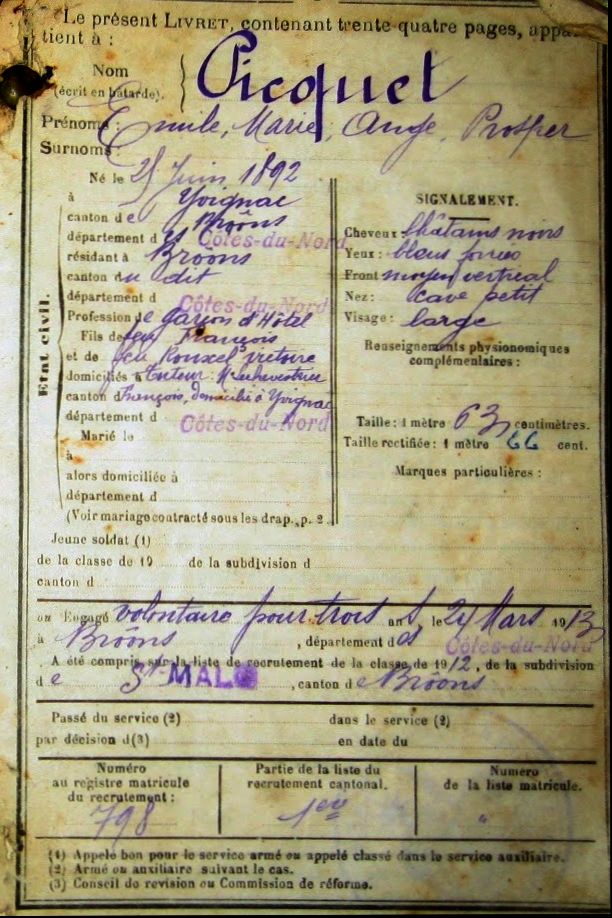 Le présent LIVRET, contenant trente quatre pages, appar
tient à :
Nom
(écrit en bâtarde).
Picquet
Prénoms : Emile, Marie, Ange, Prosper
Surnoms :
Né le 25 Juin 1892
à Yvignac
canton de Broons
département des Côtes-du-Nord
résidant à Broons
canton du dit
département d Côtes-du-Nord
Profession de garçon d'Hôtel
Fils de feu François
et de feu Rouxel victoire
domiciliés à Tuteur: Mr
canton François, domicilié à Yvignac
département d Côtes-du-Nord
Marié le
à
alors domiciliée à
département d
(Voir mariage contracté sous les drap., p. 2.
Etat civil.
SIGNALEMENT.
Cheveux : châtains noirs
Yeux : bleus foncés
Front moyen vertical
Nez : cave petit
Visage : large
Renseignements physionomiques
complémentaires :
Taille : 1 mètre 63 centimètres.
Taille rectifiée : 1 mètre 66 cent.
Marques particulières :
Jeune soldat (1)
de la classe de 19 de la subdivision d
canton d
ou Engagé volontaire pour trois ans, le 24 Mars 1913
à Brôons, département des Côtes-du-Nord
A été compris sur la liste de recrutement de la classe de 1912, de la subdivision
de St-MALO, canton de Brôons
Passé du service (2) dans le service (2)
par décision d(3) en date du
Numéro
au registre matricule
du recrutement :
798
Partie de la liste du
recrutement cantonal.
1ere
Numéro
de la liste matricule.
"
(1) Appelé bon pour le service armé ou appelé classé dans le service auxiliaire.
(2) Armé ou auxiliaire suivant le cas.
(3) Conseil de revision ou Commission de réforme.